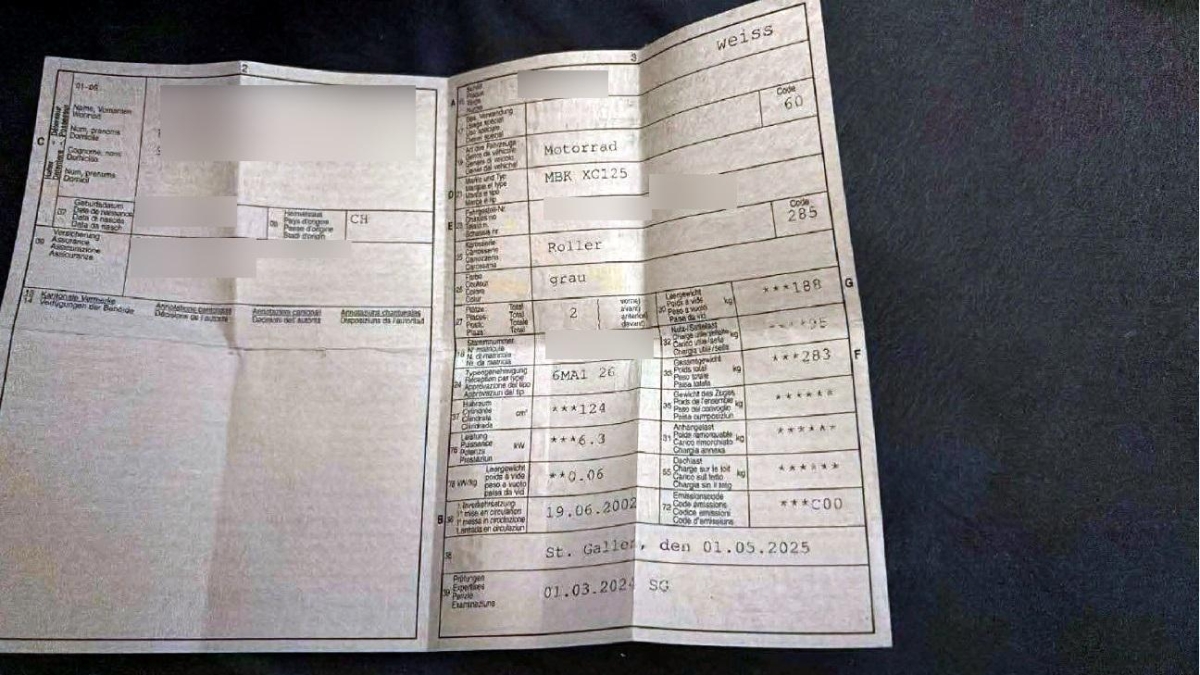 2
01-06
C
Name, Vornamen
Wohnort
Nom, prénoms
Domicile
Cognome, nomi
Domicilio
Num, prenoms
Domicil
07
Geburtsdatum
Date de naissance
Data di nascita
Data da nasch.
08
Heimatstaat
Pays d'origine
CH
09
Versicherung
Assurance
Assicurazione
Assicuranza
Kantonale Vermerke
Verfügungen der Behörde
Annotations cantonales
Décisions de l'autorité
Annotazioni cantonali
Decisioni dell'autorità
Annotaziuns chantunalas
Disposiziuns da l'autoritad
3
weiss
A
Code
60
Motorrad
D
MBR XC125
E
Code
285
25
Karosserie
Carrosserie
Carrozzeria
Carossaria
Roller
26
Farbe
Couleur
Colore
Colur
grau
27
Plätze Total
Places Total
Posti: Totale
Plazs Total
2
vorne
avant
anteriori
davant
30
Leergewicht
Poids à vide
Peso a vuoto
Paisa da vid
kg
***188
G
18
Stammnummer
N° matricule
N. di matricola
Nr. da matricla
32
kg
24
Typengenehmigung
Réception par type
Approvazione del tipo
Approvaziun dal tip
6MA1 26
33
Gesamtgewicht
Poids total
Peso totale
Paisa totala
kg
***283
F
37
Hubraum
Cylindrée
Cilindrata
Cilindrada
cm³
***124
35
Gewicht des Zuges
Poids de l'ensemble
Peso del convoglio
Paisa cumposiziun
kg
******
76
Leistung
Puissance
Potenza
Prestaziun
kW
***6.3
31
Anhängelast
Poids remorquable
Carico rimorchiato
Chargia annexa
kg
******
78 kW/kg
Leergewicht
poids à vide
peso a vuoto
paisa da vid
**0.06
55
Dachlast
Charge sur le toit
Carico sul tetto
Chargia sin il tetg
kg
******
B
36
1. Inverkehrsetzung
1re mise en circulation
1a messa in circolazione
19.06.2002
72
Emissionscode
Code émissions
Codice emissioni
Code d'emissiuns
***C00
38
St. Gallen, den 01.05.2025
39
Prüfungen
Expertises
Perizie
Examinaziuns
01.03.2024 SG